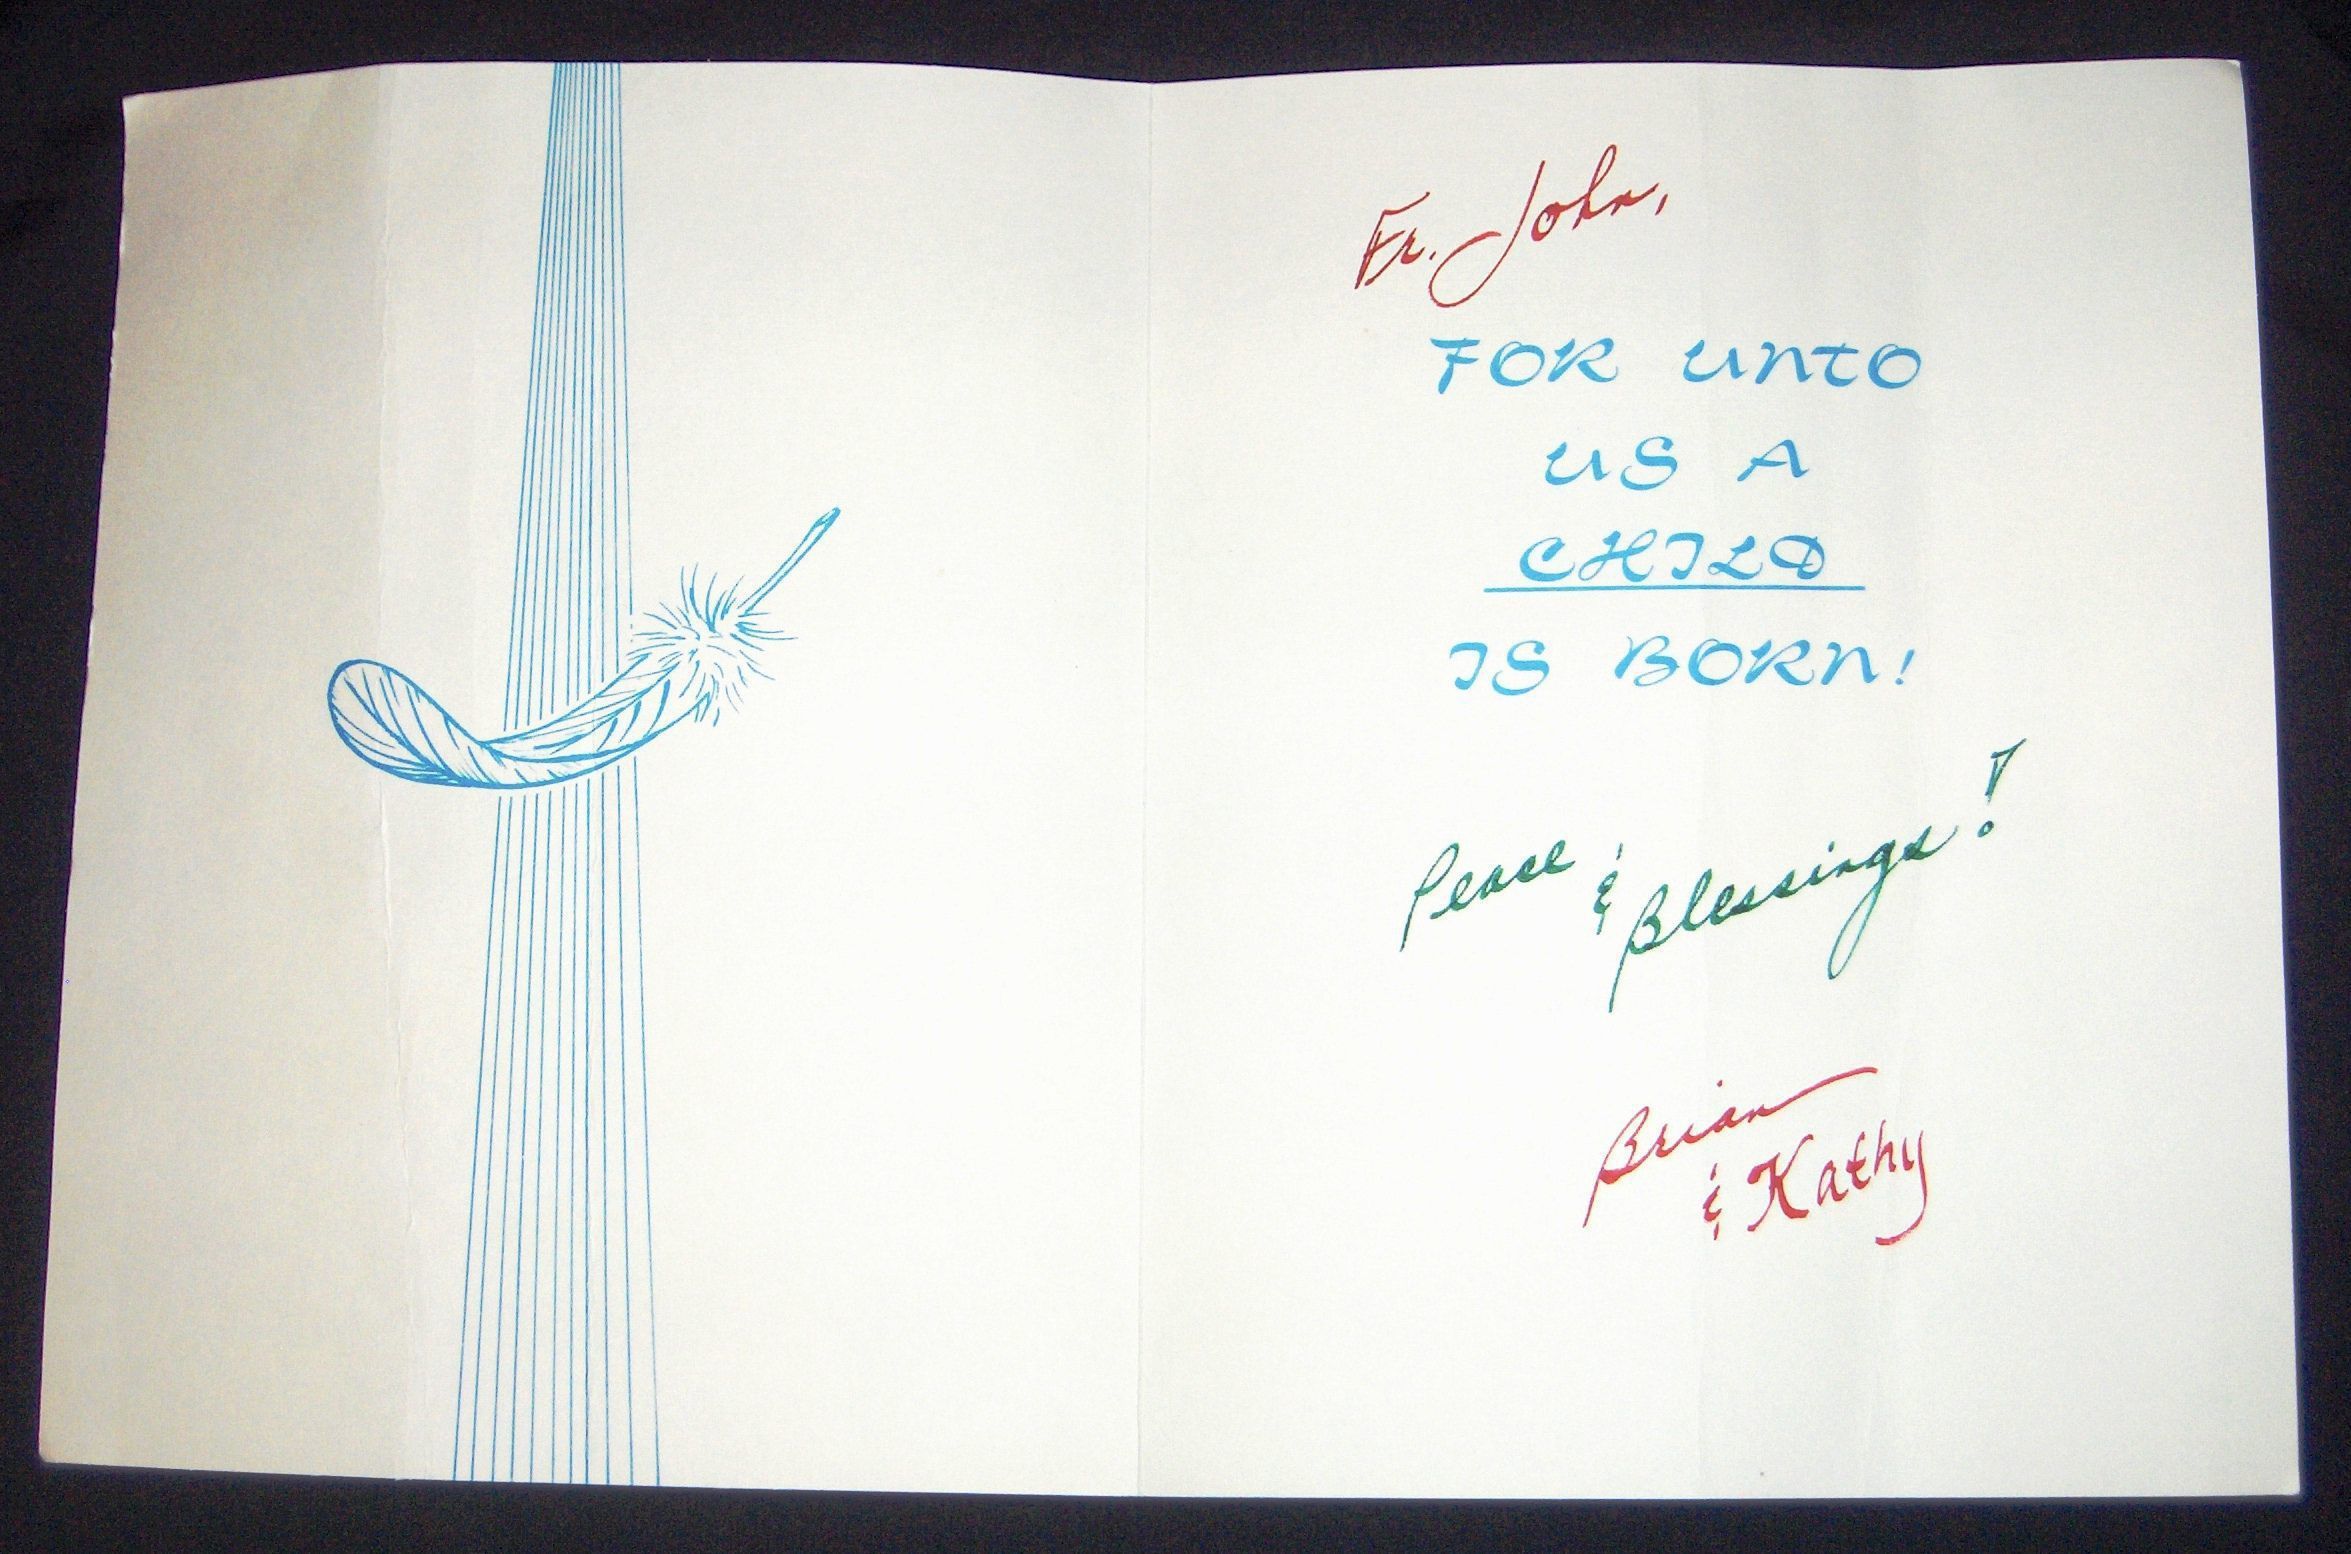 Fr. John,
FOR UNTO
US A
CHILD
IS BORN!
Peace & Blessings!
Brian
& Kathy